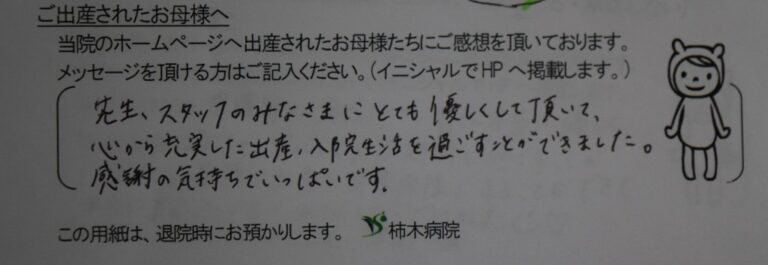 ご出産されたお母様へ
当院のホームページへ出産されたお母様たちにご感想を頂いております。
メッセージを頂ける方はご記入ください。(イニシャルでHPへ掲載します。)
先生、スタッフのみなさまにとても優しくして頂いて、
心から充実した出産、入院生活を過ごすことができました。
感謝の気持ちでいっぱいです。
この用紙は、退院時にお預かりします。 柿木病院